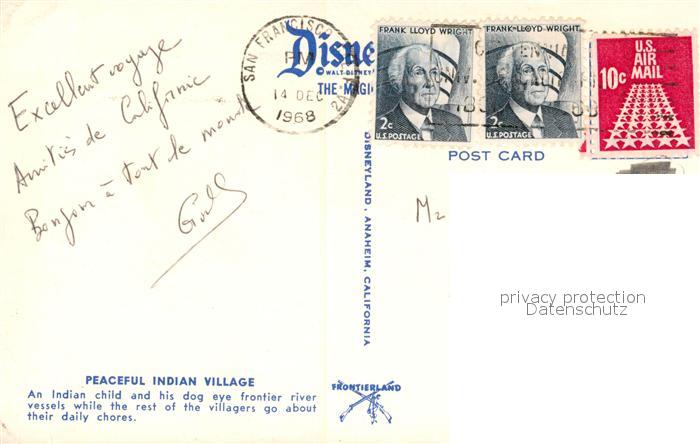 Excellent voyage
Amitiés de Californie
Bonjour à tout le monde
SAN FRANCISCO
PM
14 DEC
1968
Disne
© WALT DISNEY
THE MAGI
FRANK LLOYD WRIGHT
2c
U.S. POSTAGE
FRANK LLOYD WRIGHT
2c
U.S. POSTAGE
U.S.
AIR
MAIL
10c
POST CARD
DISNEYLAND, ANAHEIM, CALIFORNIA
M
privacy protection
Datenschutz
PEACEFUL INDIAN VILLAGE
An Indian child and his dog eye frontier river
vessels while the rest of the villagers go about
their daily chores.
FRONTIERLAND